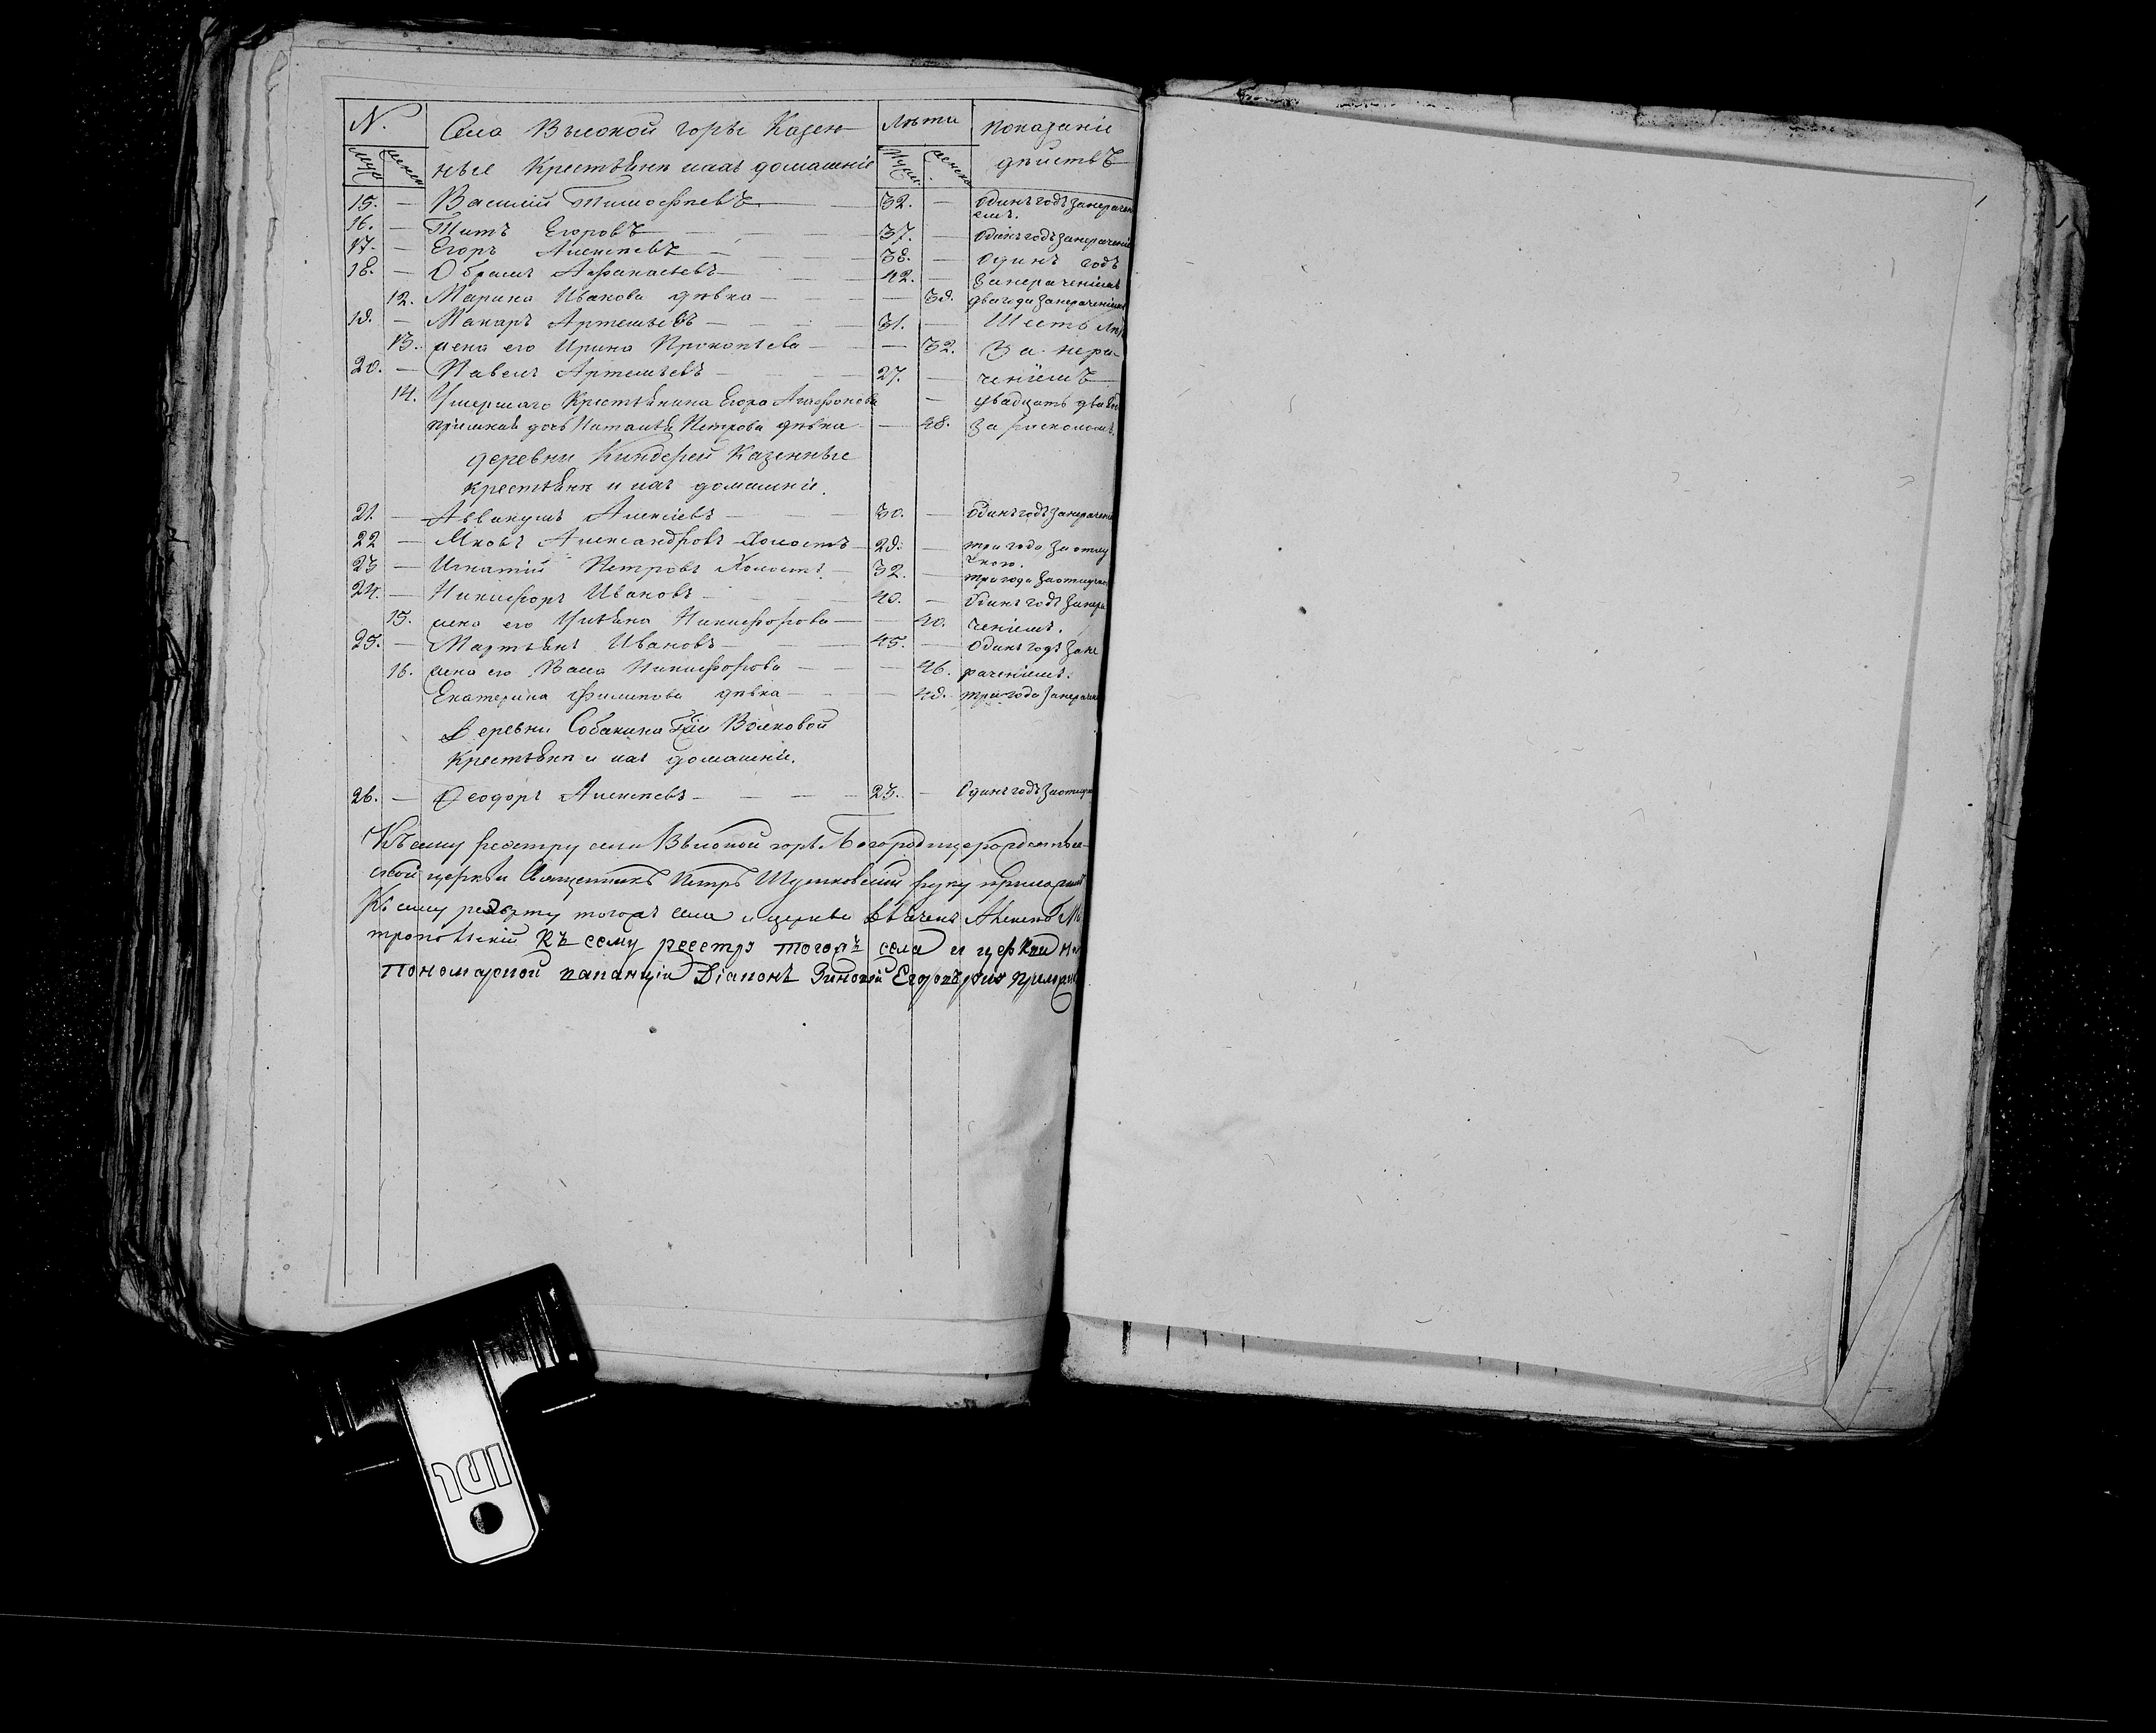 N. Села Высокой горы Казен Лѣта показаніе
муж женск ныя Крестьяня ихъ домашніе муж. женска дѣйствъ
15. — Василій Тимофѣевъ 32. — одинъ годъ занерачен
емъ.
16. — Титъ Егоровъ 37. — одинъ годъ занерачение
17. — Егоръ Алексѣевъ 38. — одинъ годъ
18. — Обрамъ Афанасьевъ 42. — занерачениемъ
12. Марина Иванова дѣвка — 39. два года занерачениемъ
19. — Макаръ Артемьевъ 31. — Шесть лѣт
13. жена его Ирина Прокопьева — 32. За нера-
20. — Павелъ Артемьевъ 27. — чениемъ
14. Умершаго Крестьянина Егора Агафонова — двадцать два го
приимная дочь Наталья Петрова дѣвка — 48. за расколомъ.
деревни Киндерей Казенные
крестьяня и ихъ домашніе.
21. — Аввакумъ Алексіевъ 30. — одинъ годъ занерачение
22 — Яковъ Александровъ Холостъ 29. — три года за отлу
чкою.
23 — Игнатій Петровъ Холостъ 32. — три года заотлучко
24. — Никифоръ Ивановъ 40. — одинъ годъ занера
15. жена его Ульяна Никифорова — 40. чениемъ.
25. — Мартьянъ Ивановъ 45. — одинъ годъ зане
16. жена его Васа Никифорова — 46. рачениемъ.
Екатерина Филипова дѣвка — 49. три года занераче
Деревни Собакина Гжи Волковой
крестьяня и ихъ домашніе.
26. — Феодоръ Алексѣевъ 23. — Одинъ годъ заотлуч
Къ сему реэстру села Высокой горы Богородицерождественс-
ской церкви Священникъ Петръ руку приложилъ
Къ сему тогожъ села и церкви
Къ сему реестру тогожъ села и церкви на
Пономарской вакансіи Діаконъ Зиновій Егоровъ руку приложи
IDL